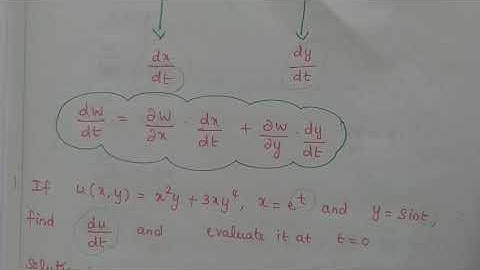 dx/dt dy/dt
dw/dt = ∂w/∂x · dx/dt + ∂w/∂y · dy/dt
) If u(x,y) = x²y + 3xy⁴, x = e^t and y = sint,
find du/dt and evaluate it at t=0